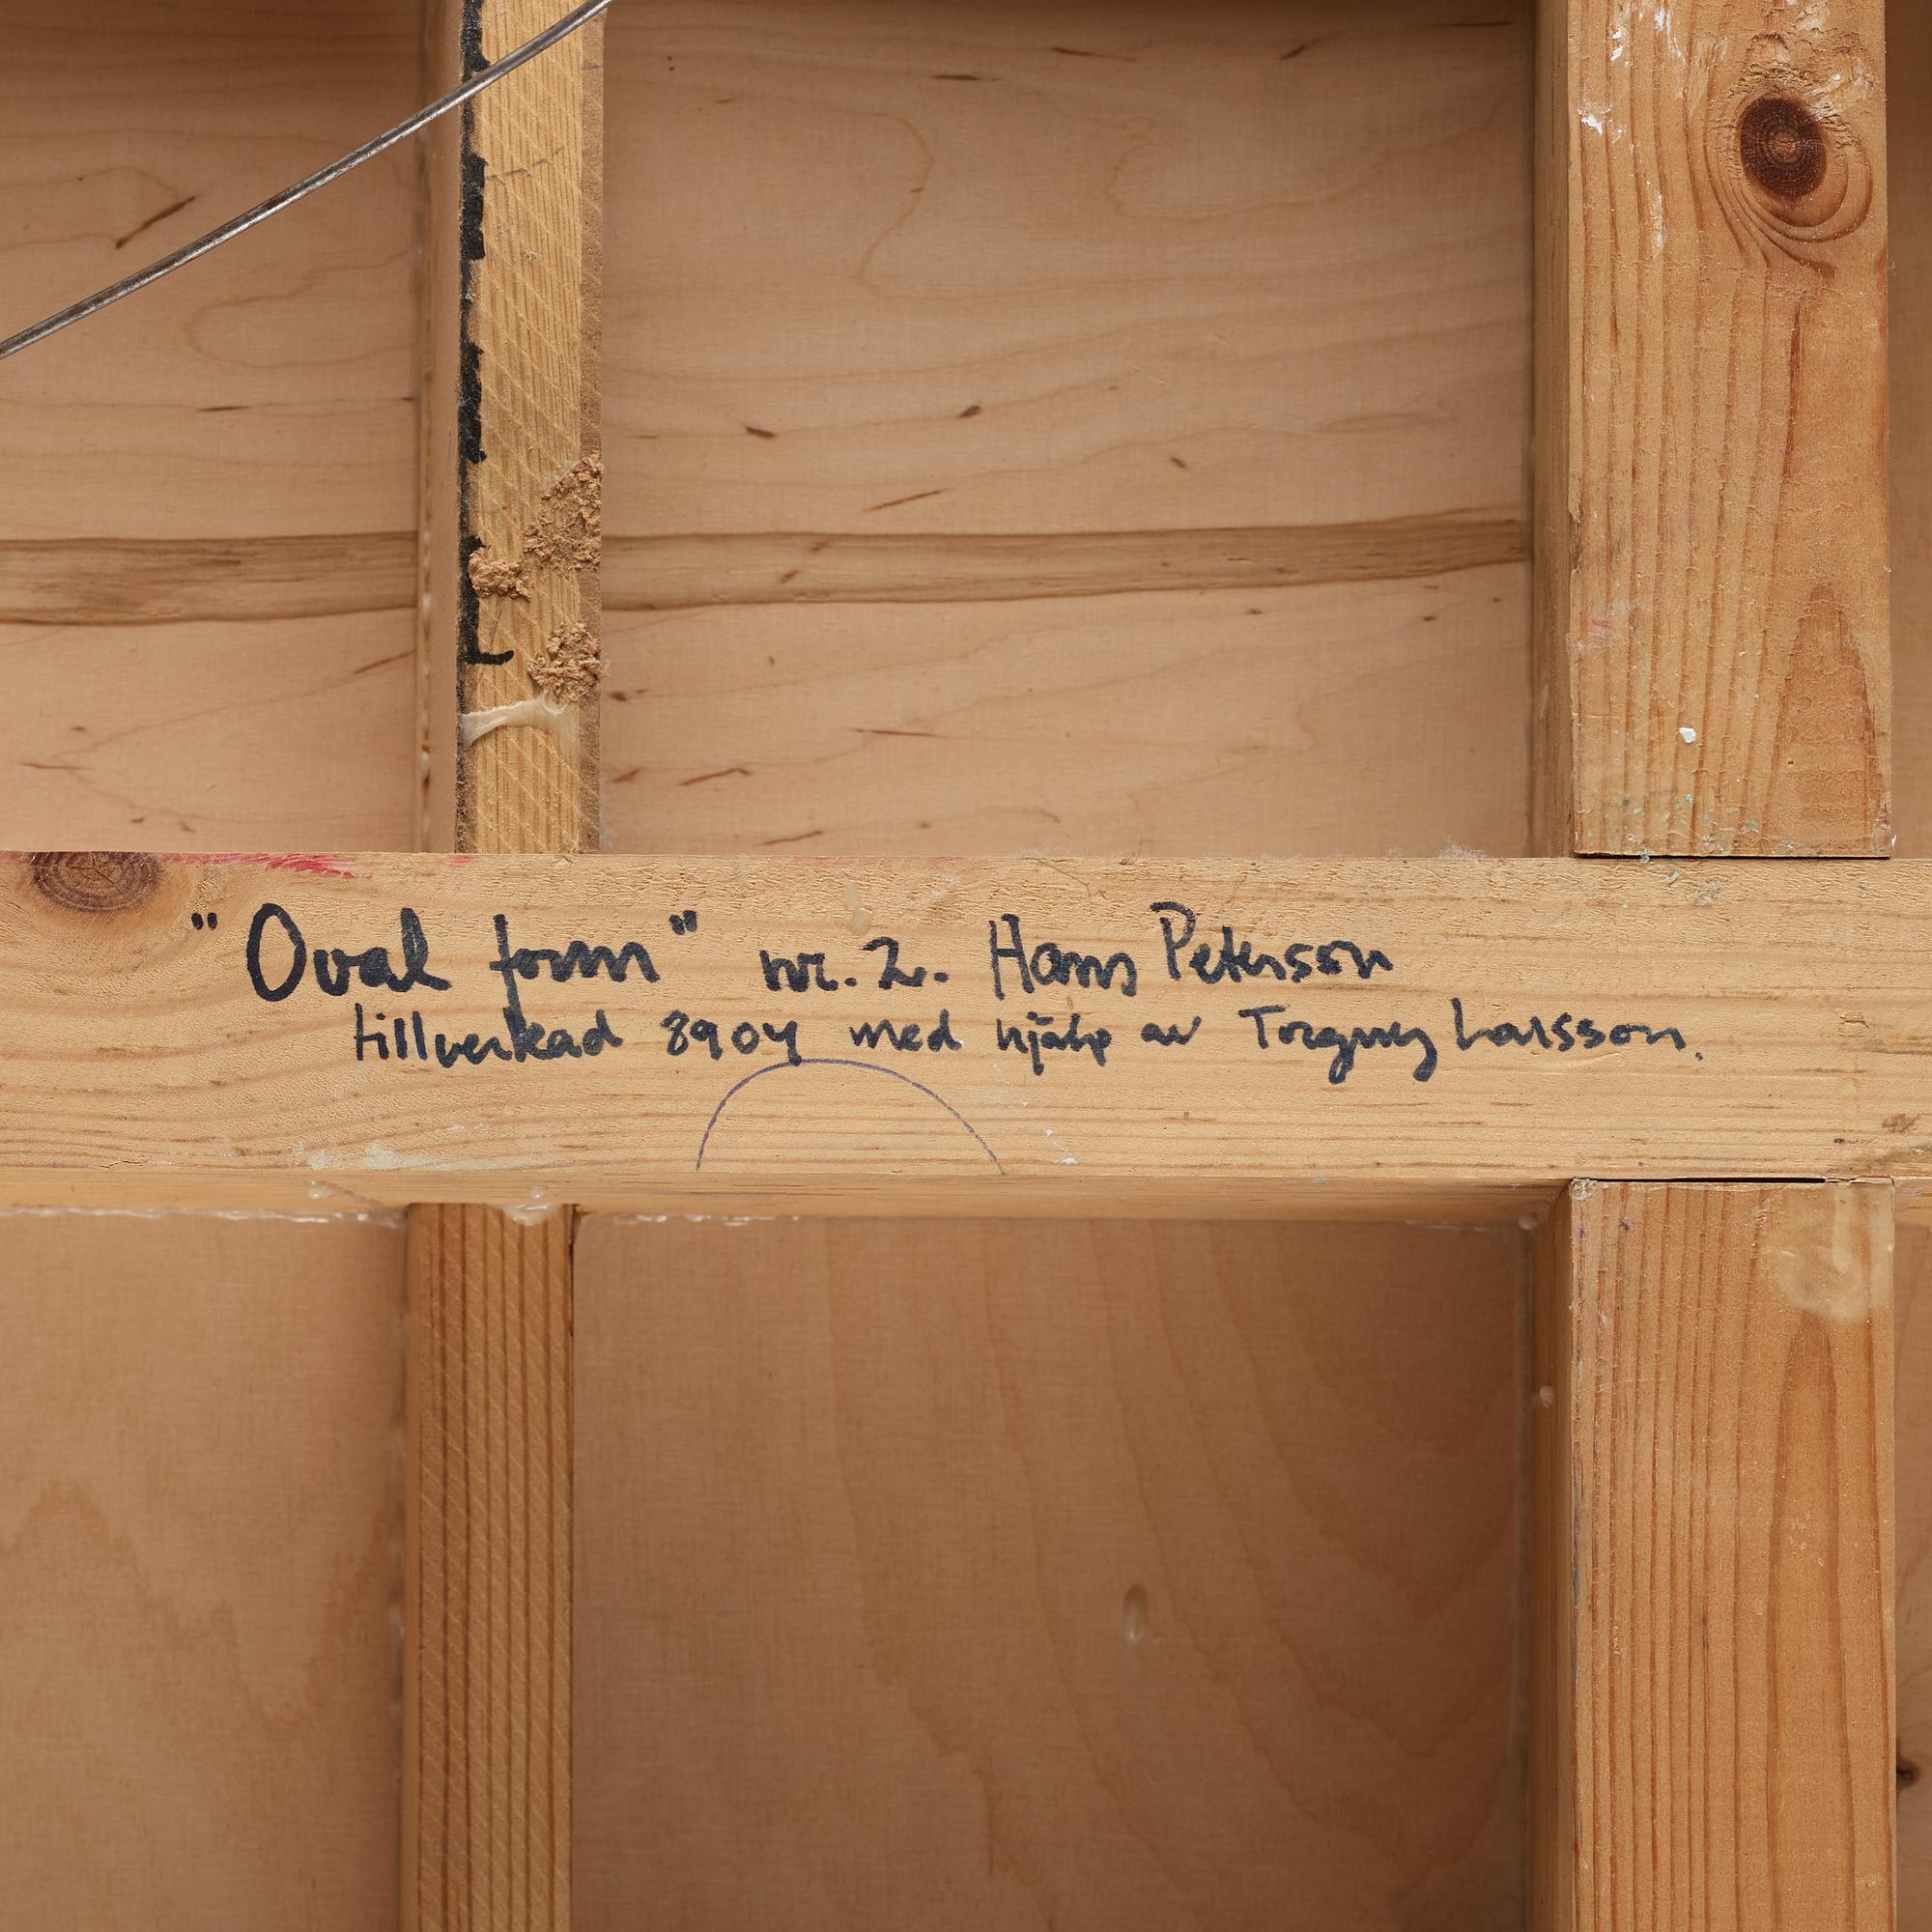 "Oval form" nr. 2. Hans Peterson
tillverkad 8904 med hjälp av Torgny Larsson.